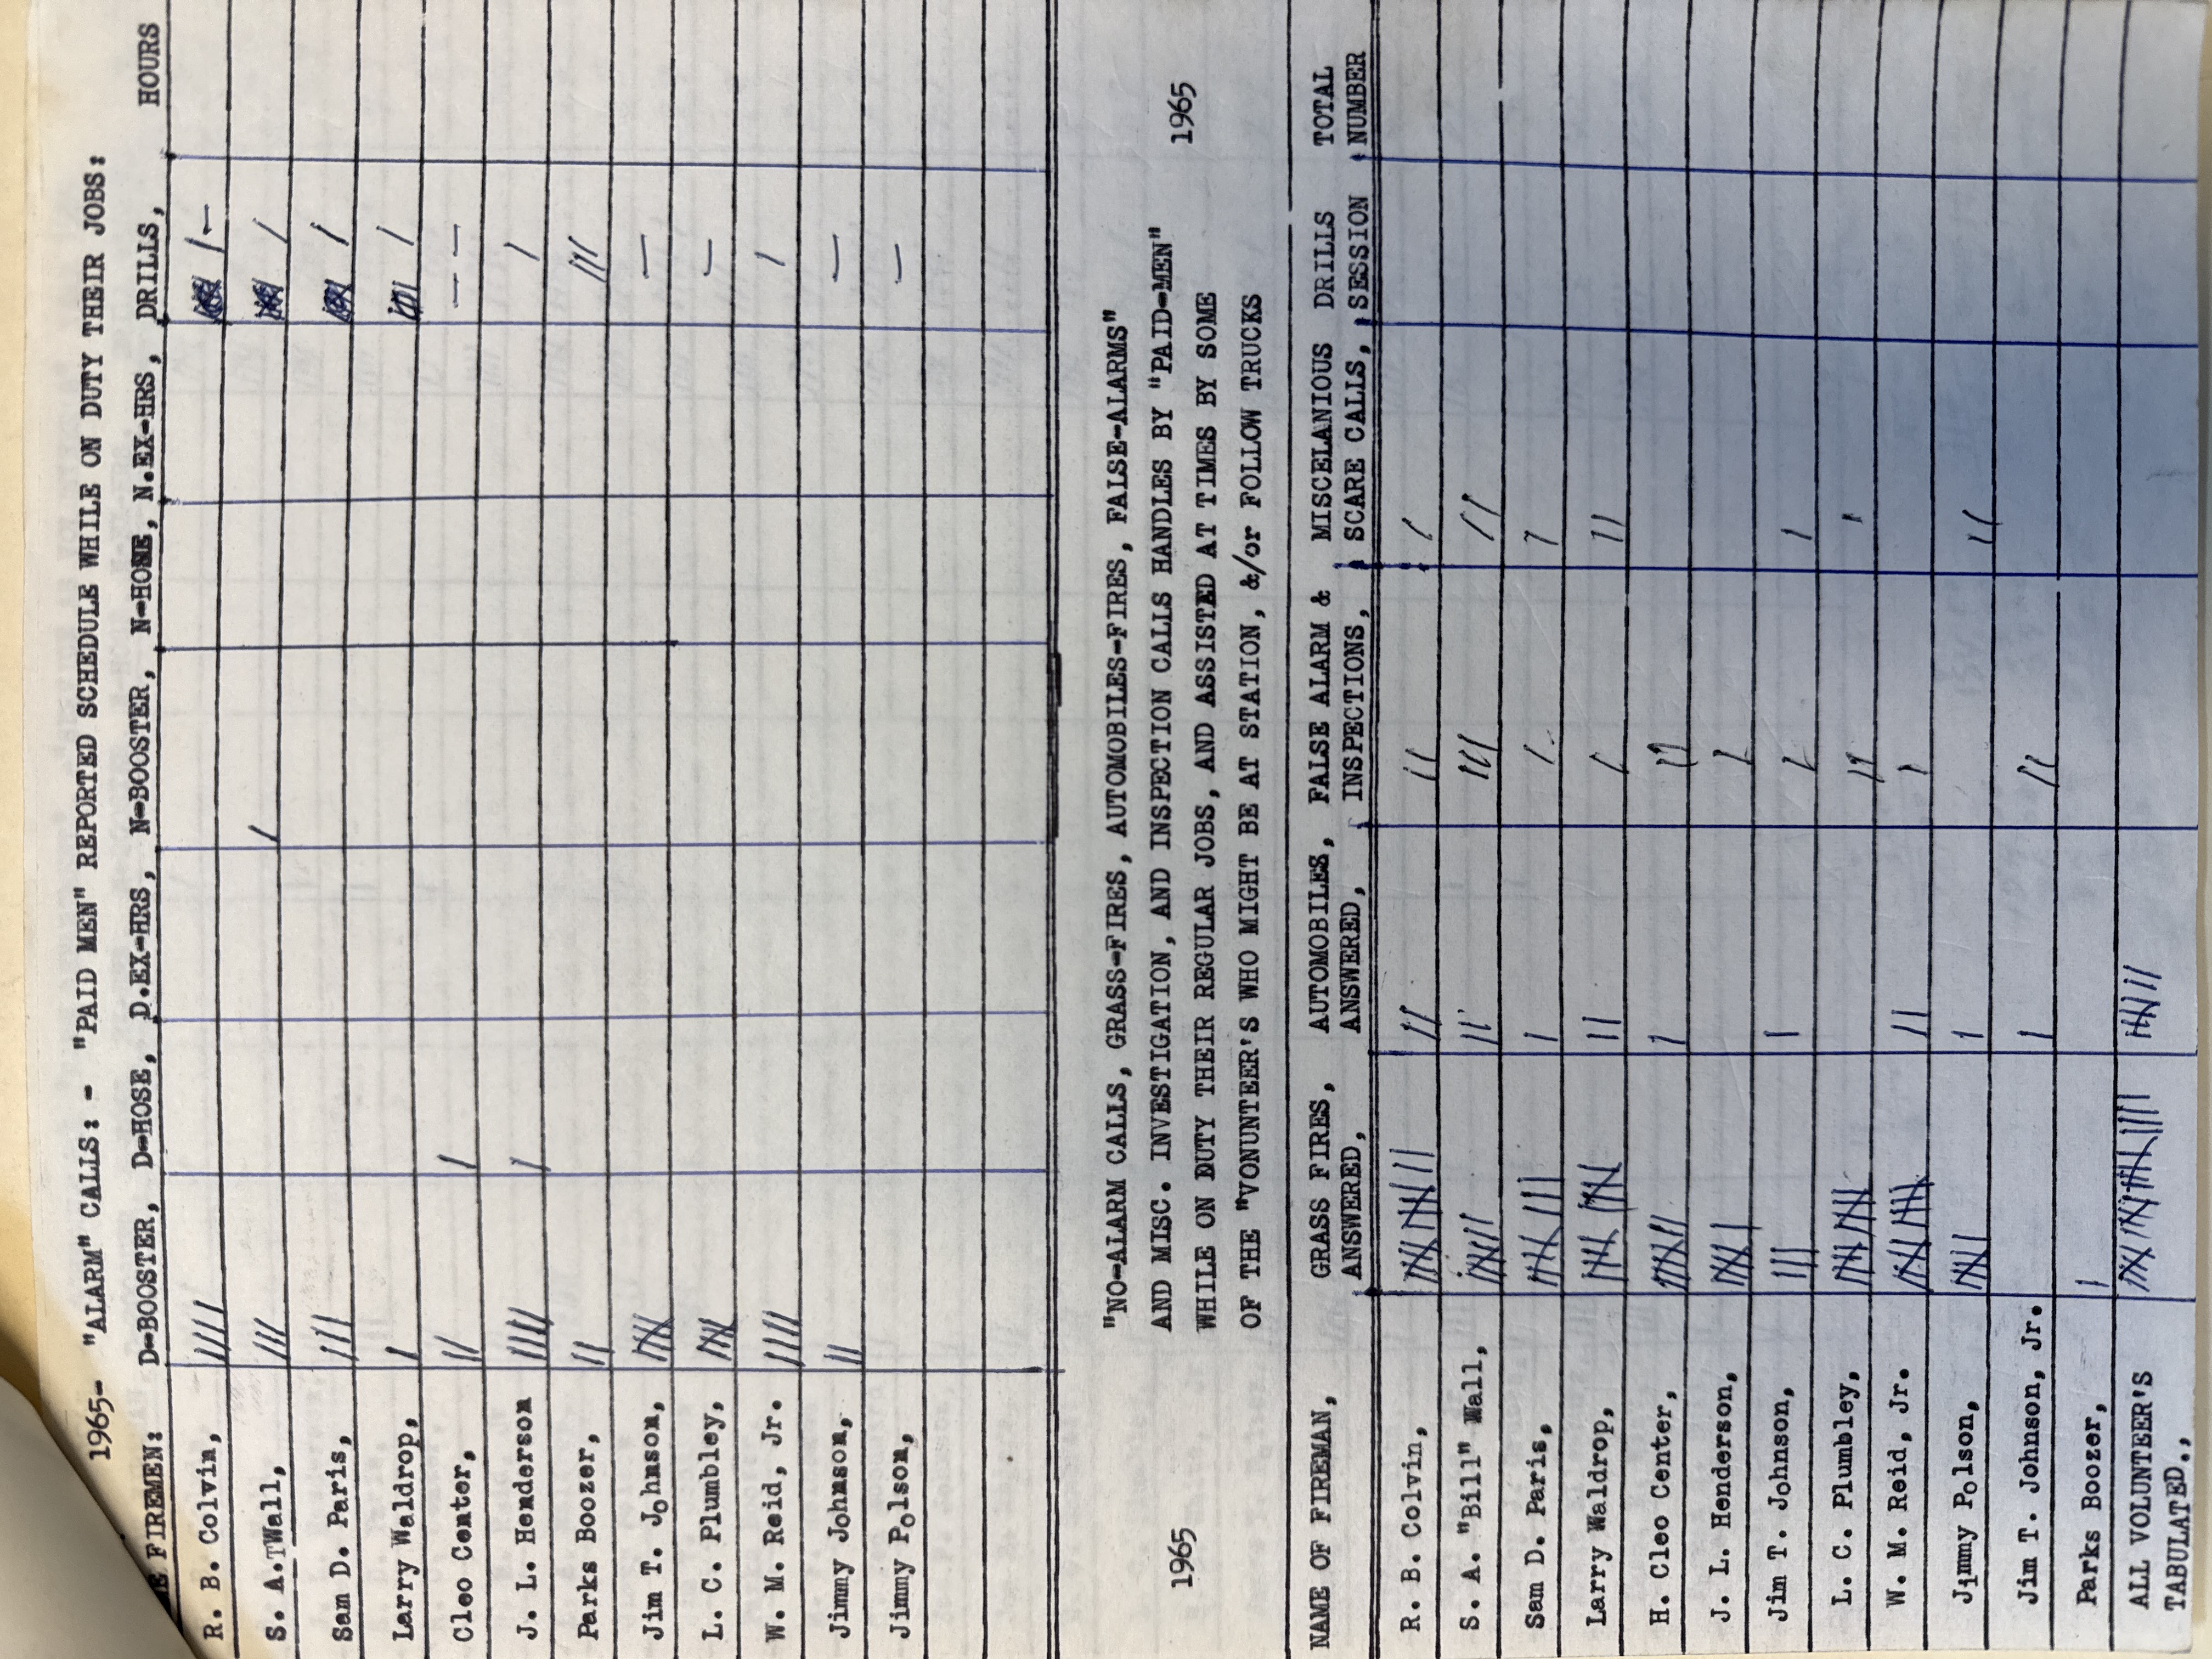 1965- "ALARM" CALLS: - "PAID MEN" REPORTED SCHEDULE WHILE ON DUTY THEIR JOBS:
FIREMEN: D-BOOSTER, D-HOSE, D.EX-HRS, N-BOOSTER, N-HOSE, N.EX-HRS, DRILLS, HOURS
R. B. Colvin,
S. A. Wall,
Sam D. Paris,
Larry Waldrop,
Cleo Center,
J. L. Henderson
Parks Boozer,
Jim T. Johnson,
L. C. Plumbley,
W. M. Reid, Jr.
Jimmy Johnson,
Jimmy Polson,
"NO-ALARM CALLS, GRASS-FIRES, AUTOMOBILES-FIRES, FALSE-ALARMS"
1965 AND MISC. INVESTIGATION, AND INSPECTION CALLS HANDLES BY "PAID-MEN" 1965
WHILE ON DUTY THEIR REGULAR JOBS, AND ASSISTED AT TIMES BY SOME
OF THE "VONUNTEER'S WHO MIGHT BE AT STATION, &/or FOLLOW TRUCKS
NAME OF FIREMAN, GRASS FIRES, AUTOMOBILES, FALSE ALARM & MISCELANIOUS DRILLS TOTAL
ANSWERED, ANSWERED, INSPECTIONS, SCARE CALLS, SESSION NUMBER
R. B. Colvin,
S. A. "Bill" Wall,
Sam D. Paris,
Larry Waldrop,
H. Cleo Center,
J. L. Henderson,
Jim T. Johnson,
L. C. Plumbley,
W. M. Reid, Jr.
Jimmy Polson,
Jim T. Johnson, Jr.
Parks Boozer,
ALL VOLUNTER'S
TABULATED.,